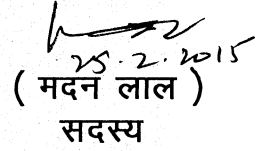 25.2.2015
( मदन लाल )
सदस्य